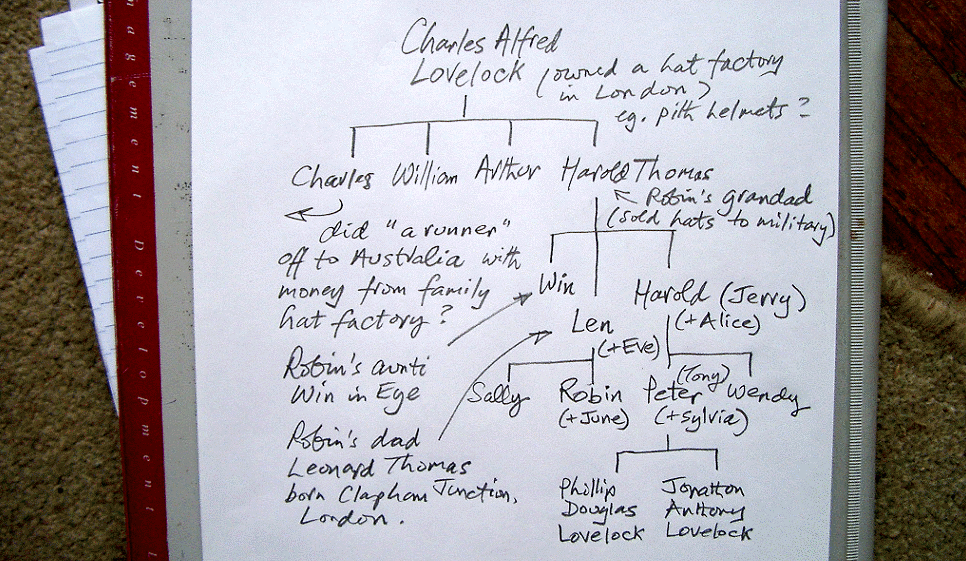 Charles Alfred
Lovelock (owned a hat factory
in London)
eg. pith helmets?
Charles William Arthur Harold Thomas
Robin's grandad
(sold hats to military)
did "a runner"
off to Australia with
money from family
hat factory?
Win
Harold (Jerry)
(+Alice)
Len
(+Eve)
Robin's aunti
Win in Eye
Sally
Robin
(+June)
(Tony)
Peter
(+Sylvia)
Wendy
Robin's dad
Leonard Thomas
born Clapham Junction,
London.
Phillip
Douglas
Lovelock
Jonathon
Anthony
Lovelock
agement Development